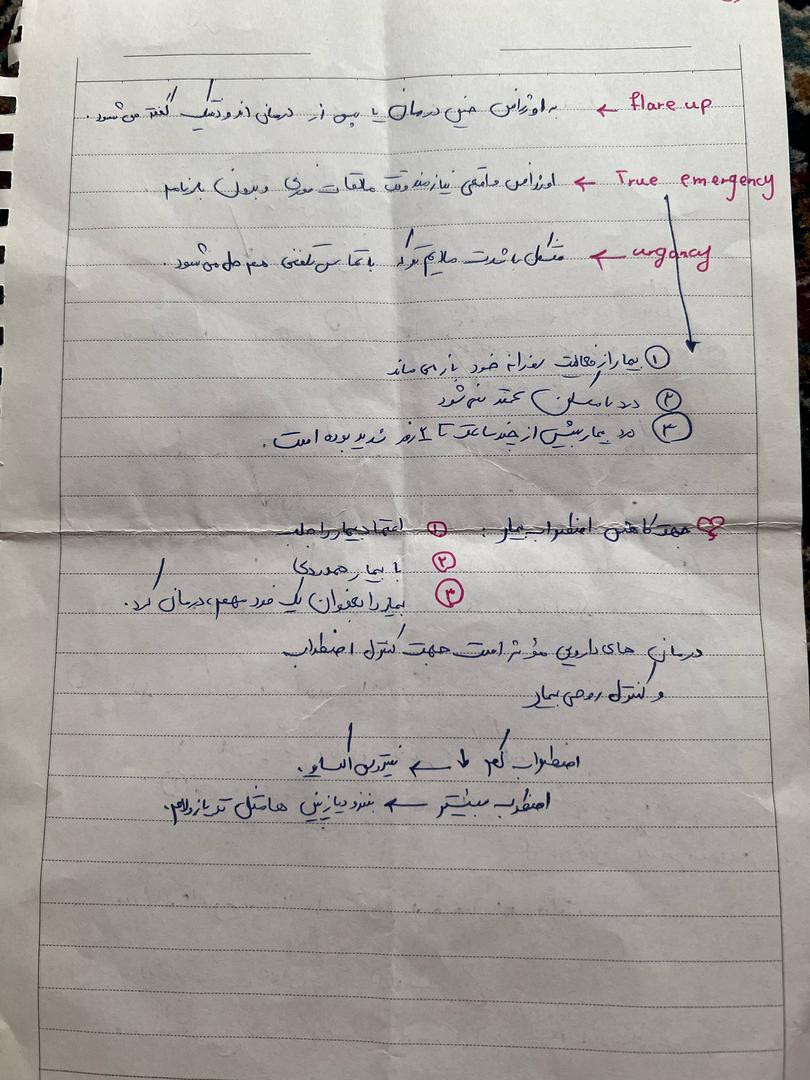 flare up ← به اورژانس حین درمان یا پس از درمان اندودنتیک گفته می‌شود.
True emergency ← اورژانس واقعی نیازمند وقت ملاقات فوری و بدون برنامه
urgancy ← مشکل با شدت ملایم که با تماس تلفنی هم حل می‌شود.
① بیمار از فعالیت روزانه خود باز می‌ماند
② درد با مسکن تمتد نمی‌شود
③ درد بیمار بیش از چند ساعت تا ۲ روز شدید بوده است.
جهت کاهش اضطراب بیمار : ① اعتماد بیمار را جلب
② با بیمار همدردی
③ بیمار را بعنوان یک فرد مهم، درمان کرد.
درمان های دارویی مؤثر است جهت کنترل اضطراب
و کنترل روحی بیمار
اضطراب کم ↓ ← نیتروس اکساید.
اضطراب بیشتر ← بنزودیازپین ها مثل تریازولام.